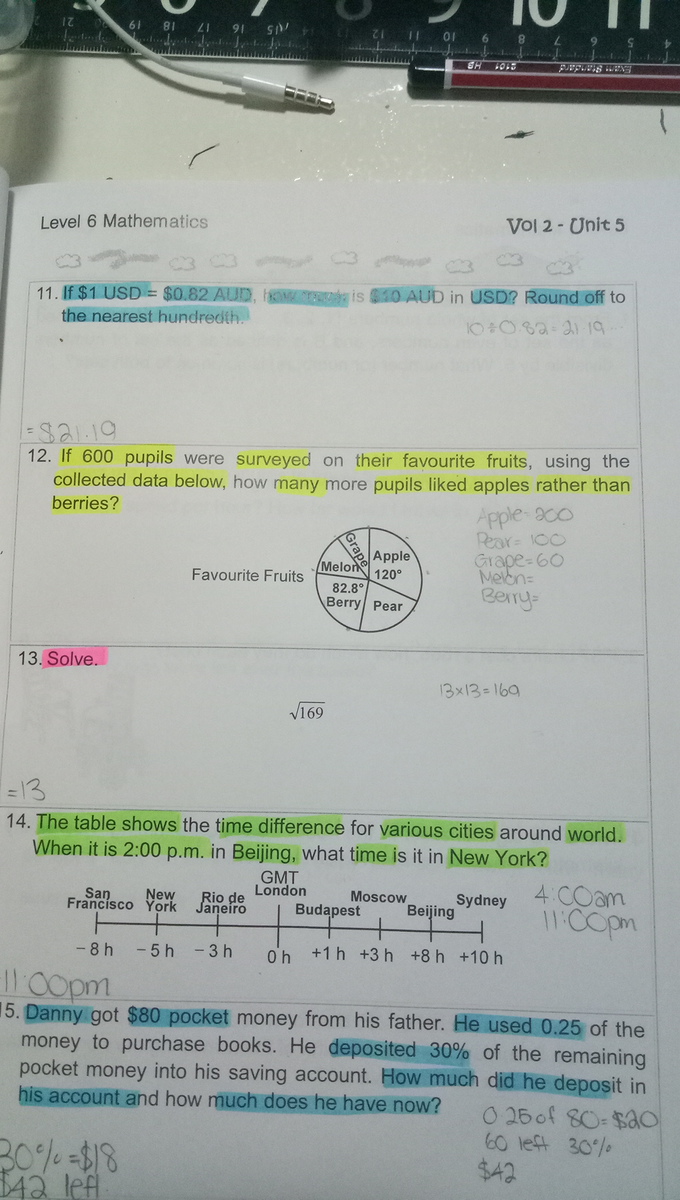 21 19 18 17 16 15 14 13 12 11 10 9 8 7 6 5 4
9 10 11
Exam Standard 2101 HB
Level 6 Mathematics
Vol 2 - Unit 5
11. If $1 USD = $0.82 AUD, how much is $10 AUD in USD? Round off to
the nearest hundredth.
10÷0.82=21.19...
=$21.19
12. If 600 pupils were surveyed on their favourite fruits, using the
collected data below, how many more pupils liked apples rather than
berries?
Apple=200
Pear=100
Grape=60
Melon=
Berry=
Favourite Fruits
Grape
Apple
120°
Melon
82.8°
Berry
Pear
13. Solve.
13×13=169
√169
=13
14. The table shows the time difference for various cities around world.
When it is 2:00 p.m. in Beijing, what time is it in New York?
San Francisco
New York
Rio de Janeiro
GMT London
Budapest
Moscow
Beijing
Sydney
- 8 h - 5 h - 3 h 0 h +1 h +3 h +8 h +10 h
4:00am
11:00pm
11:00pm
15. Danny got $80 pocket money from his father. He used 0.25 of the
money to purchase books. He deposited 30% of the remaining
pocket money into his saving account. How much did he deposit in
his account and how much does he have now?
0.25 of 80=$20
60 left 30%
$42
30%=$18
$42 left